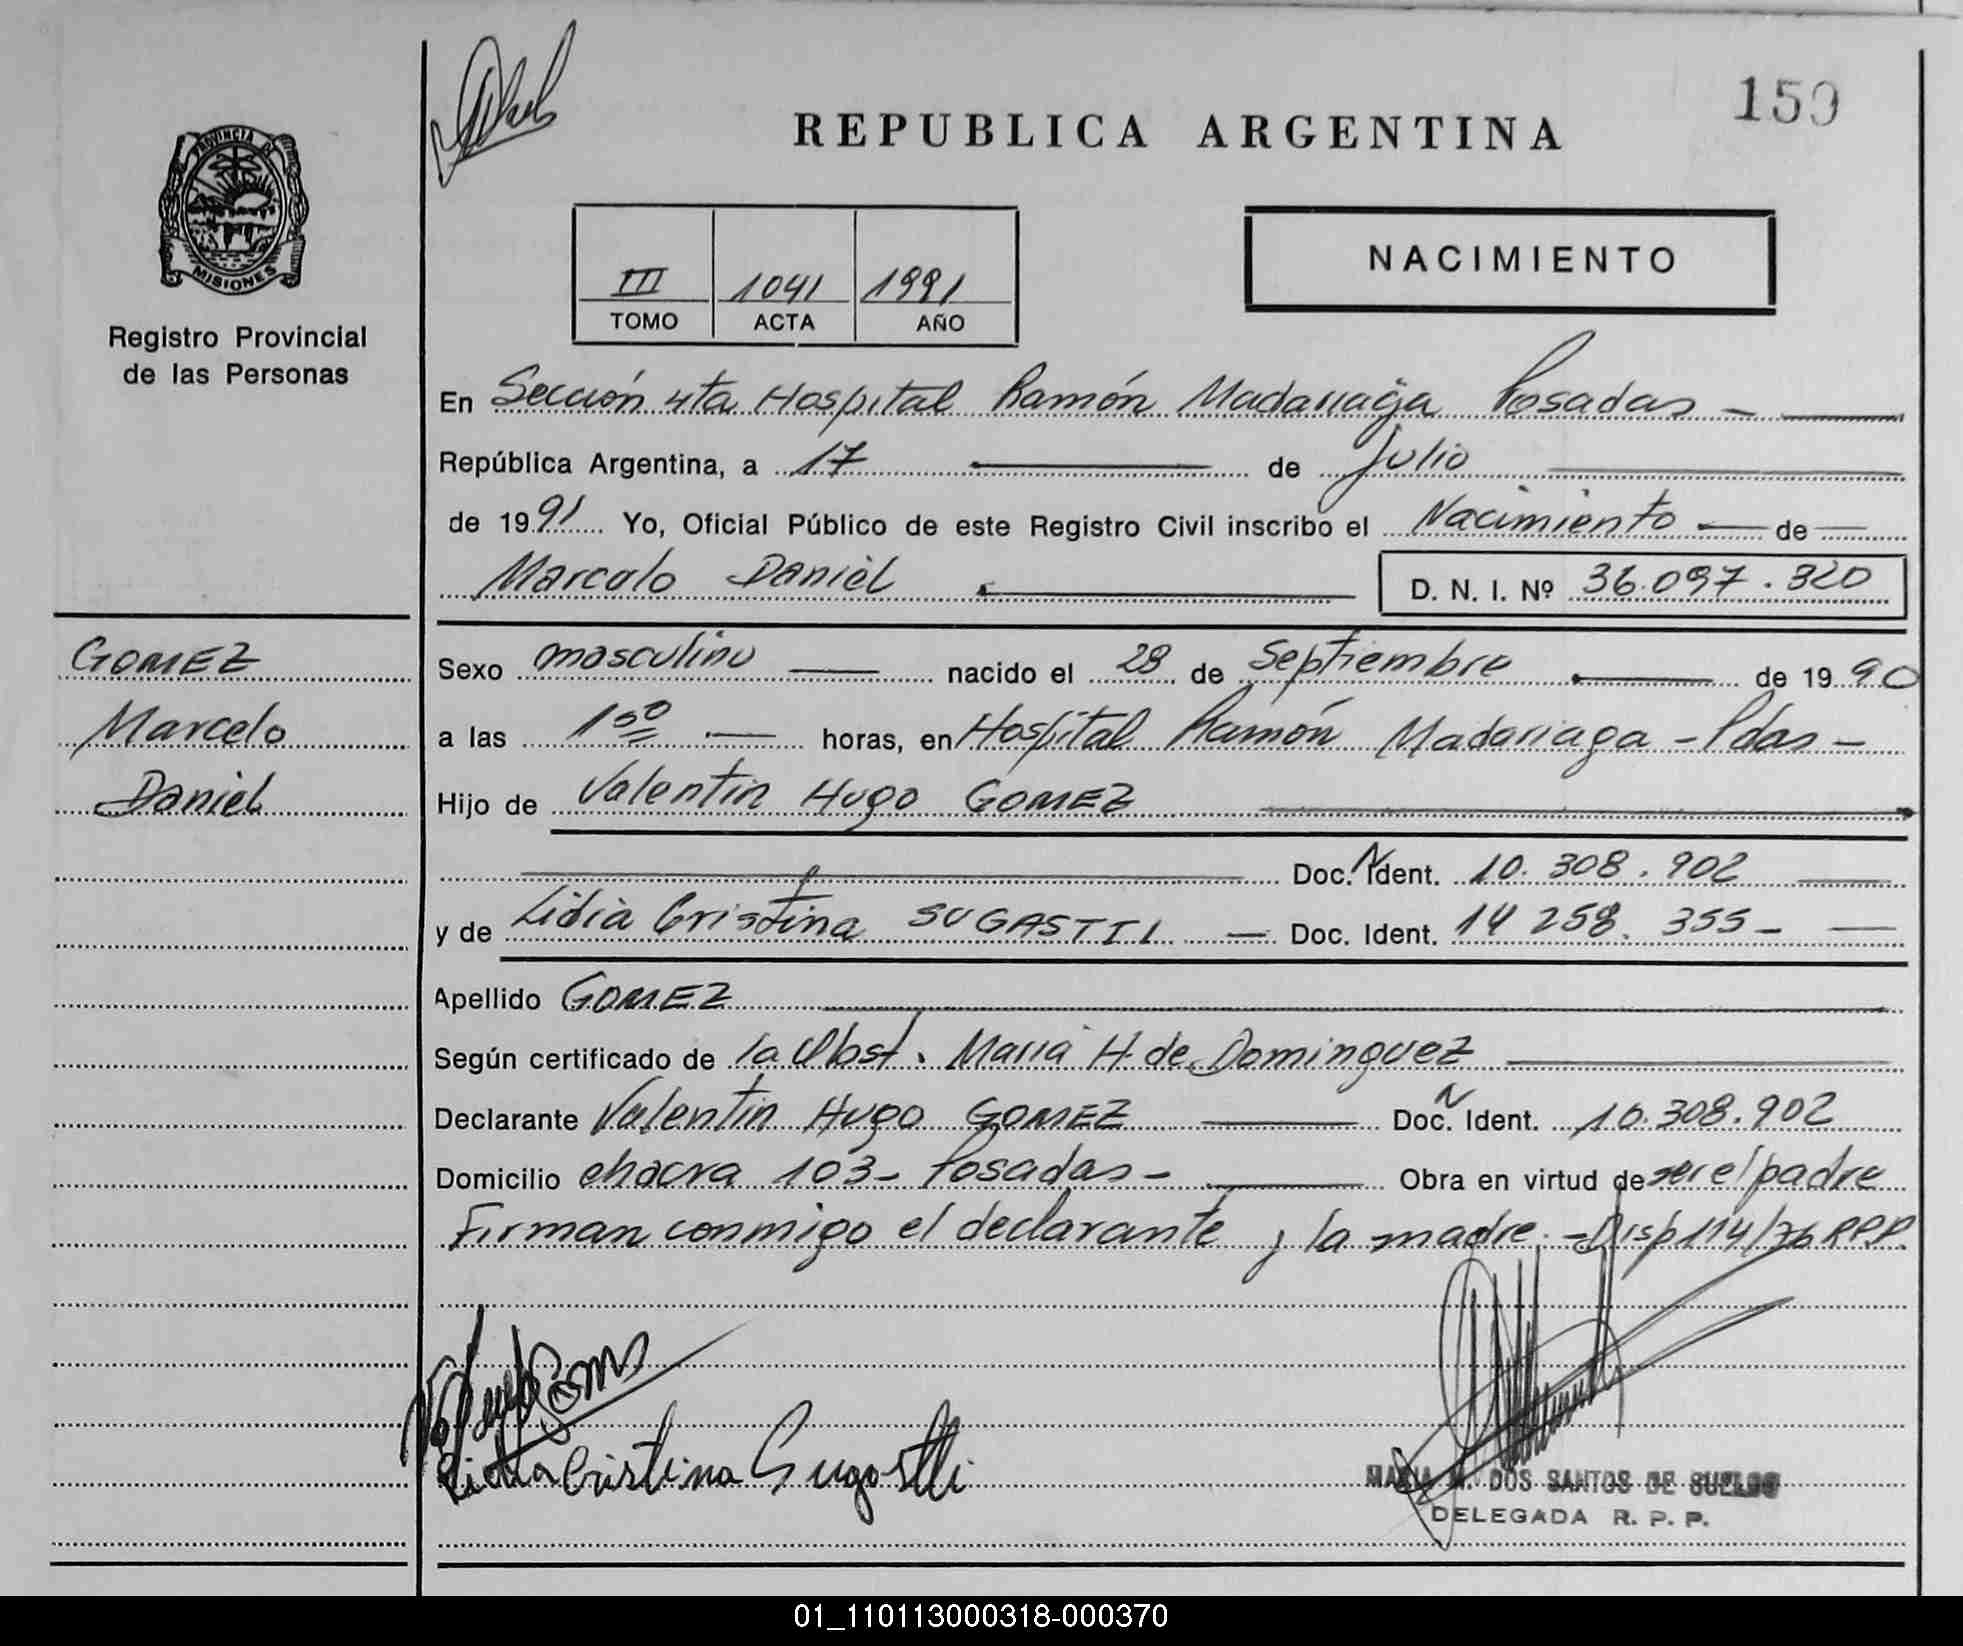 159
REPUBLICA ARGENTINA
PROVINCIA DE
MISIONES
Registro Provincial
de las Personas
NACIMIENTO
III 1041 1991
TOMO ACTA AÑO
En Sección 4ta Hospital Ramón Madariaga Posadas -
República Argentina, a 17 de Julio
de 1991 Yo, Oficial Público de este Registro Civil inscribo el Nacimiento de
Marcelo Daniel D. N. I. Nº 36.097.320
GOMEZ
Marcelo
Daniel
Sexo masculino nacido el 28 de Septiembre de 1990
a las 1⁵⁰ horas, en Hospital Ramón Madariaga - Pdas -
Hijo de Valentin Hugo GOMEZ
Doc. N Ident. 10.308.902
y de Lidia Cristina SUGASTTI Doc. Ident. 14 258.355 -
Apellido GOMEZ
Según certificado de la Obst. Maria H. de Dominguez
Declarante Valentin Hugo GOMEZ Doc. N Ident. 10.308.902
Domicilio chacra 103 - Posadas - Obra en virtud de ser el padre
Firman conmigo el declarante y la madre. - Disp 114/76 R.P.P.
Cristina Sugastti
MARIA M. DOS SANTOS DE SUELDO
DELEGADA R. P. P.
01_110113000318-000370